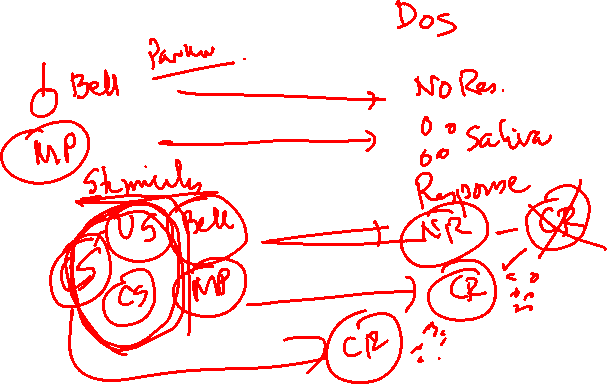 Dos
Bell Pavlov. No Res.
MP Saliva
Stimulus Response
US Bell NR CR
S CS MP CR
CR